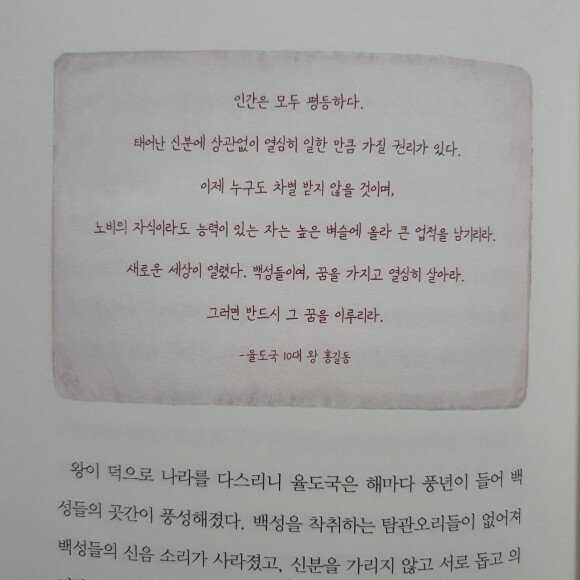 인간은 모두 평등하다.
태어난 신분에 상관없이 열심히 일한 만큼 가질 권리가 있다.
이제 누구도 차별 받지 않을 것이며,
노비의 자식이라도 능력이 있는 자는 높은 벼슬에 올라 큰 업적을 남기리라.
새로운 세상이 열렸다. 백성들이여, 꿈을 가지고 열심히 살아라.
그러면 반드시 그 꿈을 이루리라.
-율도국 10대 왕 홍길동
왕이 덕으로 나라를 다스리니 율도국은 해마다 풍년이 들어 백
성들의 곳간이 풍성해졌다. 백성을 착취하는 탐관오리들이 없어져
백성들의 신음 소리가 사라졌고, 신분을 가리지 않고 서로 돕고 의